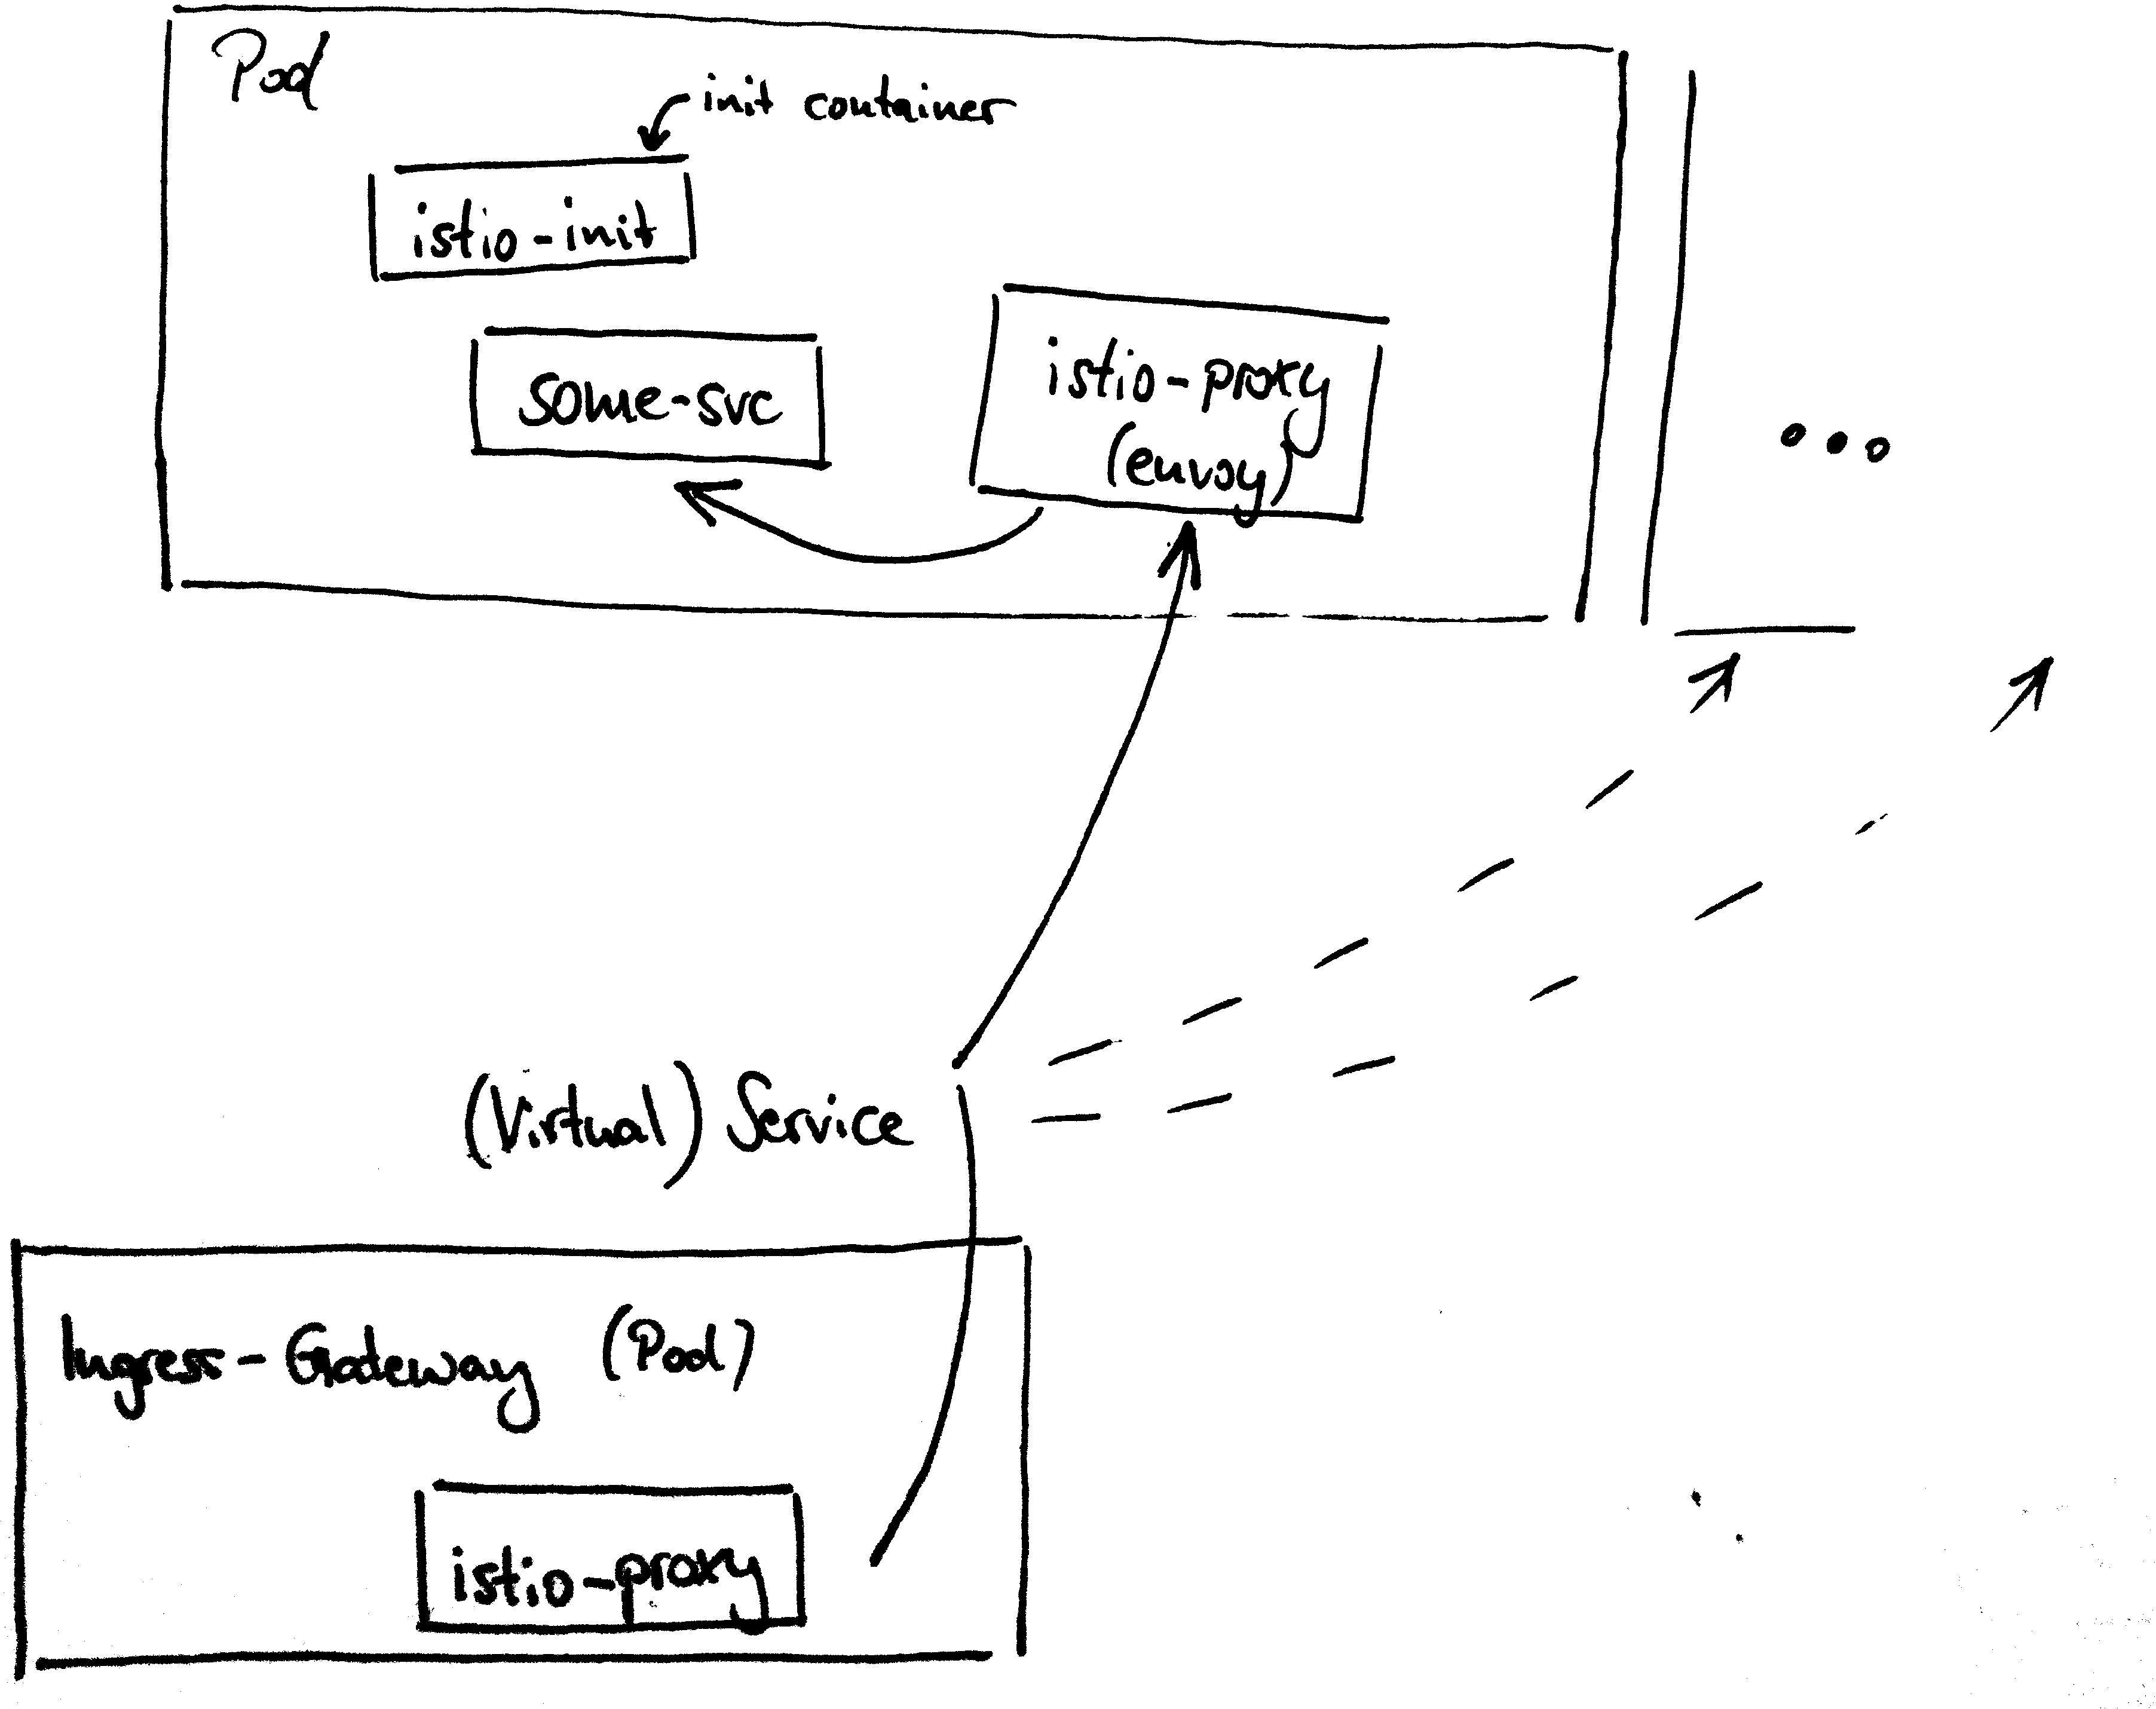 Pod
init container
istio-init
some-svc
istio-proxy
(envoy)
(Virtual) Service
Ingress-Gateway (Pod)
istio-proxy